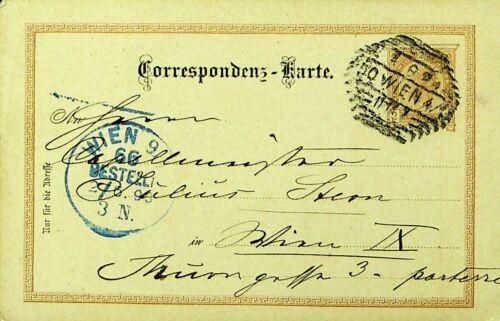 Correspondenz-Karte.
An Herrn
Kapellmeister
Julius Stern
in Wien IX
Thurngasse 3 - parterre
Nur für die Adresse
WIEN 9
66
BESTELLT
3 N.
WIEN 4